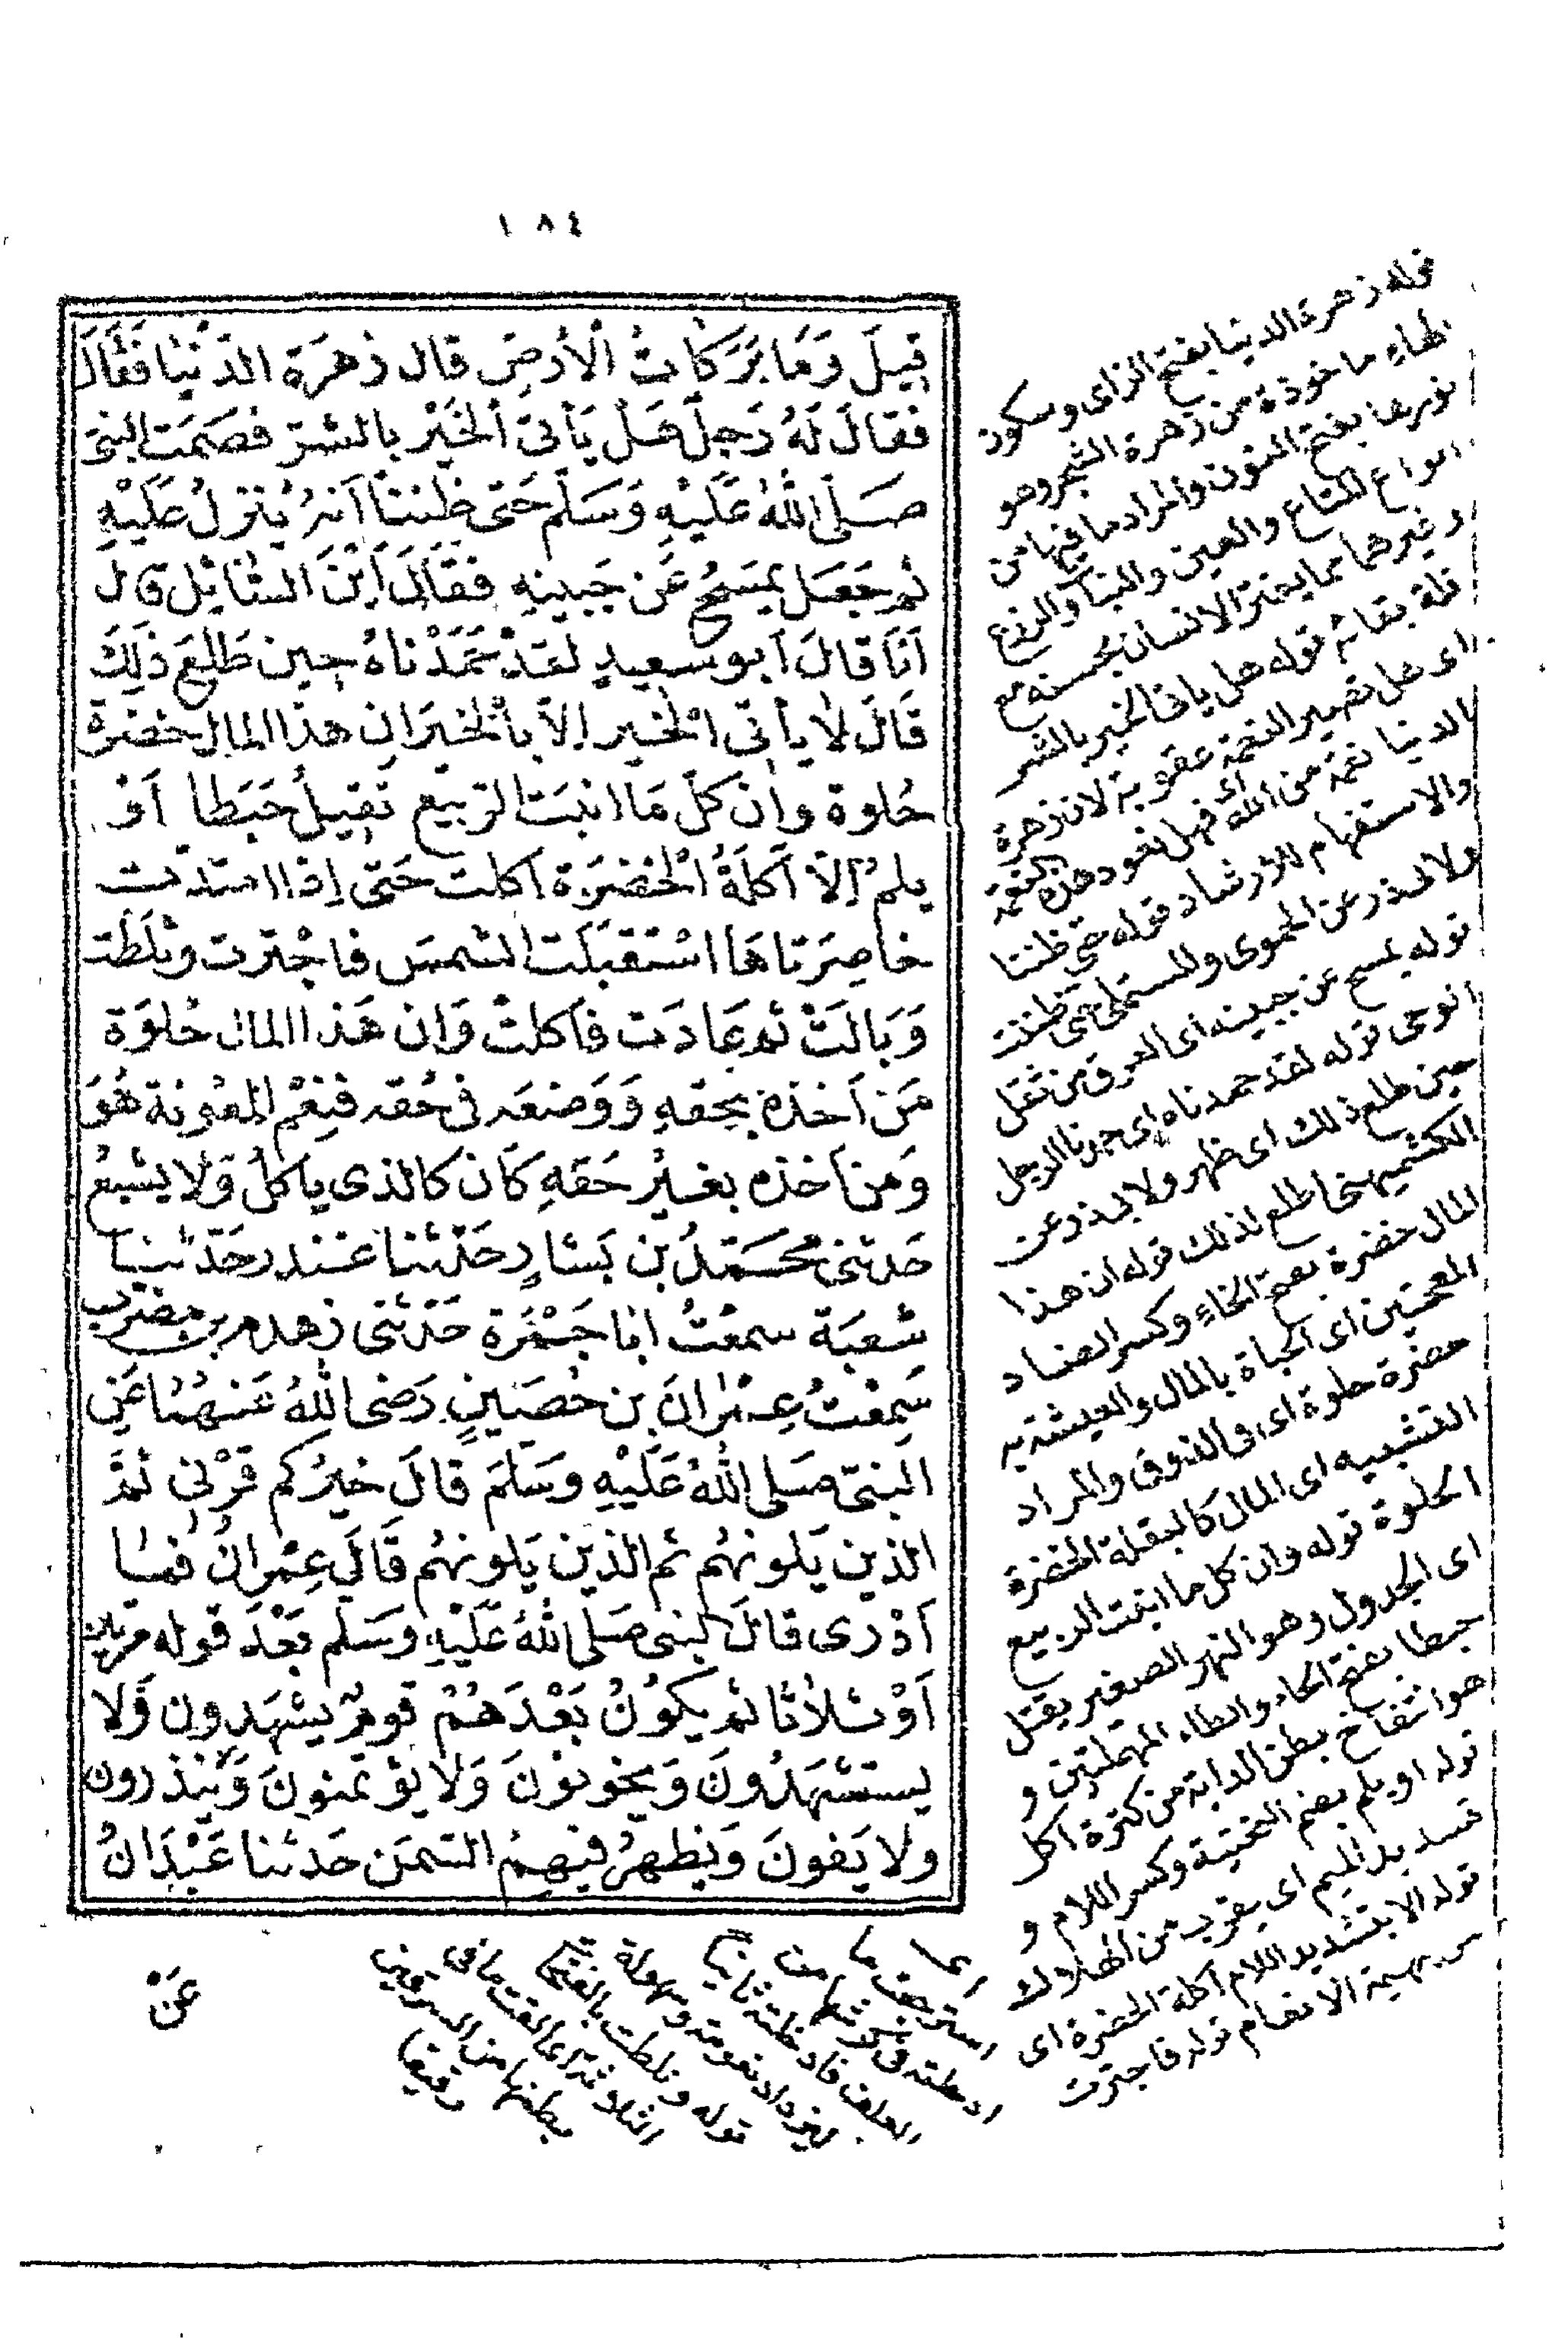 ١٨٤
قِيلَ وَمَا بَرَكَاتُ الْأَرْضِ قال زَهْرَة الدّنْيا فَقَالَ
فقالَ لَهُ رَجلٌ هَلْ يَأتى الْخَيْر بالشرّ فصَمَت النبىّ
صَلّى اللهُ عَلَيْهِ وَسَلّم حَتى ظننّا اَنهُ يُنزلُ عَلَيْهِ
ثم جَعَل يمسَحُ عَن جَبينهِ فقَالَ اَيْنَ السّائِل قال
اَنَا قالَ اَبو سعيدٍ لقدْ حَمَدْناهُ حِين طَلعَ ذلِكَ
قَالَ لا يأتى الْخير اِلّا بالْخيَر اِن هذا المال خضرَة
حُلوة وان كلّ مَا انبَت الرّبيع تَقِيلُ حَبَطا اَوْ
يلمّ اِلّا آكلَةُ الْخضرَة اَكلت حَتى اِذا امتدت
خاصِرَتاهَا اسْتقبَلت الشمسَ فاجْترت وثلَطت
وَبَالَتْ ثم عَادَت فاَكلتْ وَان هَذا المال حُلوَة
مَن اَخذهُ بحقهِ وَوَضعَه فى حَقه فنِعْم المعُونة هُوَ
وَمن اَخذه بغيْر حَقهِ كَان كالذى ياكلُ وَلا يشبَعُ
حَدثنى محَمّدُ بن بَشارٍ حَدّثنا غندر حَدّثنا
شعبَة سمعْتُ ابَا جَمْرَة حَدّثنى زهدم بن مضرّب
سَمِعْتُ عِمْرانَ بن حُصَينٍ رَضى اللهُ عَنهُما عَنِ
النبىّ صَلى اللهُ عَلَيْهِ وَسَلّمَ قالَ خيرُكم قَرْنى ثمَّ
الذين يَلونهُم ثم الذين يَلونهُم قَالَ عِمْرانُ فما
اَدْرى قالَ النبى صَلى اللهُ عَلَيْهِ وَسَلم بَعْدَ قوله مرتين
اَوْ ثلاثا ثم يكوُنُ بَعْدَهُمْ قومٌ يشهَدون وَلا
يستشهَدُونَ وَيخونونَ وَلا يؤتمنونَ وَيَنذرون
ولا يَفونَ وَيَظهرُ فيهِمُ السّمَن حَدثنا عَبْدَانُ
عَنْ
قوله زهرة الدنيا بفتح الزاى وسكون
الهاء ماخوذة من زهرة الشجر وهو
نورها بفتح النون والمراد ما فيها من
انواع المتاع والعين والنبات والزرع
وغيرهما مما يغتر الانسان بحسنه مع
قلة بقائه قوله هل ياتى الخير بالشر
اى هل تصير النعمة عقوبة لان زهرة
الدنيا نعمة من الله فهل تعود هذه النعمة
والاستفهام للارشاد قوله حتى ظننا
ولابى ذر عن الحموى والمستملى حتى ظننت
قوله يمسح عن جبينه اى العرق من ثقل
الوحى قوله لقد حمدناه اى حمدنا الرجل
حين طلع ذلك اى ظهر ولابى ذر عن
الكشميهنى اطلع لذلك قوله ان هذا
المال خضرة بفتح الخاء وكسر الضاد
المعجمتين اى الحياة بالمال والعيشة به
خضرة حلوة اى فى الذوق والمراد
التشبيه اى المال كالبقلة الخضرة
الحلوة قوله وان كل ما انبت الربيع
اى الجدول وهو النهر الصغير يقتل
حبطا بفتح الحاء والطاء المهملتين و
هو انتفاخ بطن الدابة من كثرة اكل
قوله او يلم بضم التحتية وكسر اللام و
تشديد الميم اى يقرب من الهلاك
قوله الا بتشديد اللام آكلة الخضرة اى
بهيمة الانعام قوله فاجترت